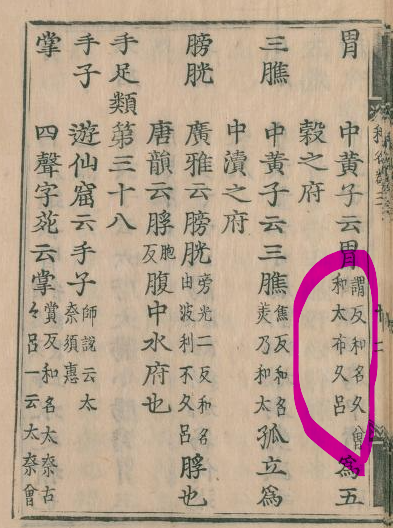 胃 中黄子云胃謂反和名久曾和太布久呂為五
榖之府
三膲 中黄子云三膲焦反和名美乃和太孤立為
中瀆之府
膀胱 廣雅云膀胱旁光二反和名由波利不久呂脬也
唐韻云脬胞反腹中水府也
手足類第三十八
手子 遊仙窟云手子師說云太奈須惠
掌 四聲字苑云掌賞反和名太奈古々呂一云太奈曾